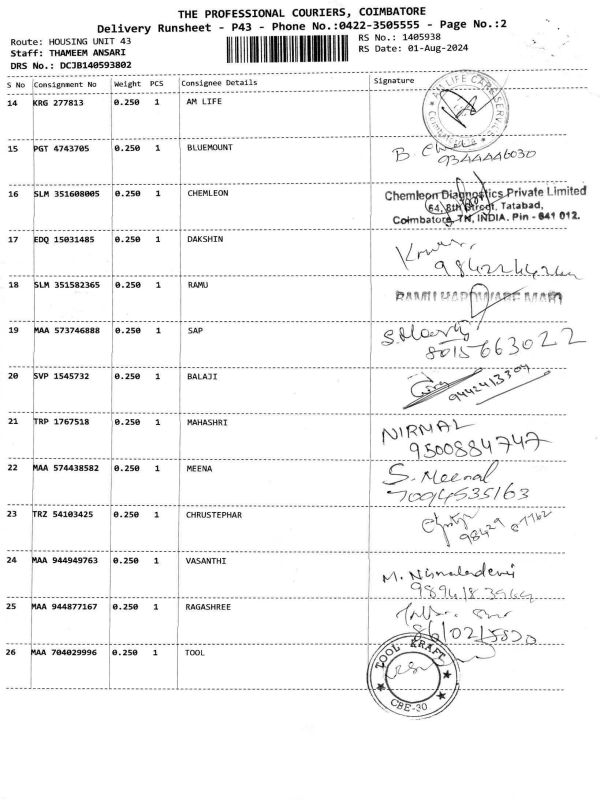 THE PROFESSIONAL COURIERS, COIMBATORE
Delivery Runsheet - P43 - Phone No.:0422-3505555 - Page No.:2
Route: HOUSING UNIT 43
RS No.: 1405938
Staff: THAMEEM ANSARI
RS Date: 01-Aug-2024
DRS No.: DCJB140593802
S No Consignment No Weight PCS Consignee Details Signature
14 KRG 277813 0.250 1 AM LIFE
AM LIFE CARE SERVICE
15 PGT 4743705 0.250 1 BLUEMOUNT
B
16 SLM 351608005 0.250 1 CHEMLEON
Chemleon Diagnostics Private Limited
64, 8th Street, Tatabad,
Coimbatore, TN, INDIA. Pin - 641 012.
17 EDQ 15031485 0.250 1 DAKSHIN
18 SLM 351582365 0.250 1 RAMU
RAMU HARDWARE MART
19 MAA 573746888 0.250 1 SAP
8015663022
20 SVP 1545732 0.250 1 BALAJI
9442413304
21 TRP 1767518 0.250 1 MAHASHRI
NIRMAL
9500884747
22 MAA 574438582 0.250 1 MEENA
S. Meenal
7094535163
23 TRZ 54103425 0.250 1 CHRUSTEPHAR
98429 87762
24 MAA 944949763 0.250 1 VASANTHI
M. Nirmaladevi
25 MAA 944877167 0.250 1 RAGASHREE
26 MAA 704029996 0.250 1 TOOL
TOOL KRAFT
CBE-30